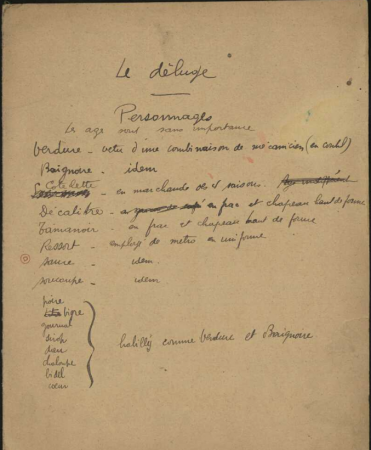 Le déluge
Personnages
Les age sont sans importance
Verdure - vetu d'une combinaison de mécanicien (en coutil)
Baignoire - idem
Cotelette - en marchande des 4 saisons.
Décalibre - en frac et chapeau haut de forme
Tamanoir en frac et chapeau haut de forme
Ressort - employé de metro en uniforme
idem
soucoupe - idem
poire
tigre
journal
sirop
chaloupe
habillés comme Verdure et Baignoire